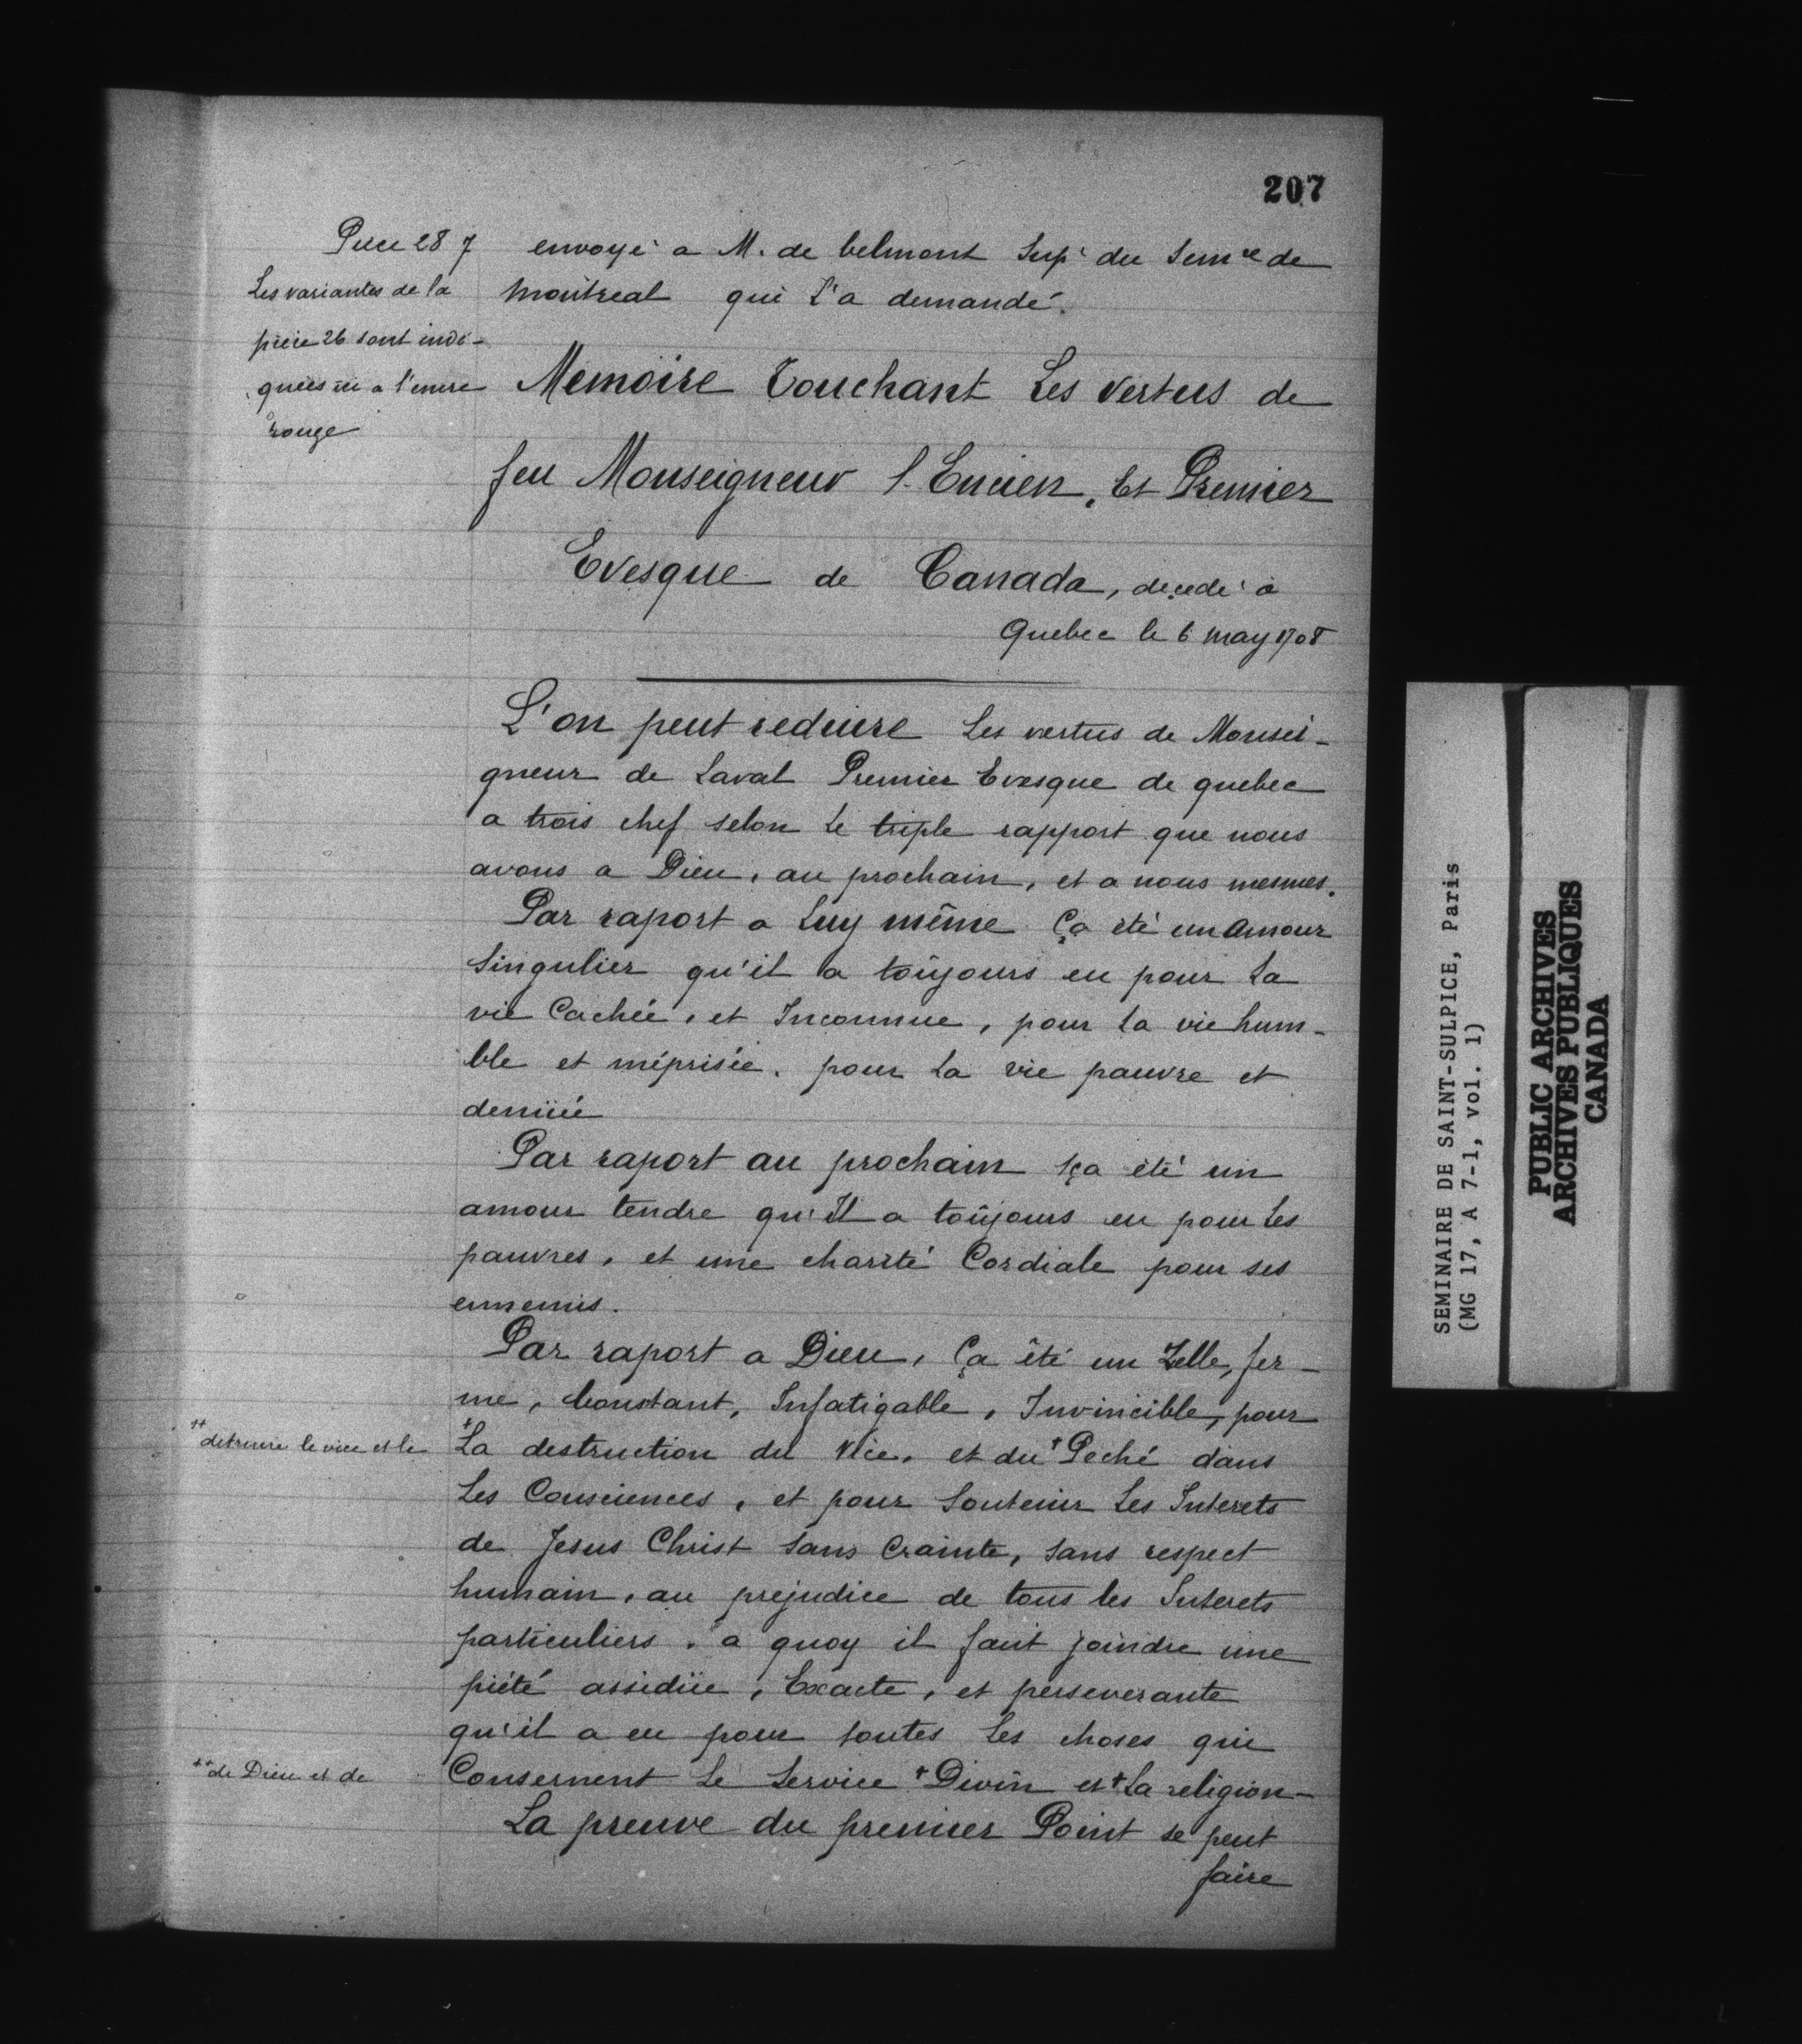 207
Piece 28 7
Les variantes de la
pièce 26 sont indi-
quées ici a l'encre
rouge
envoyé a M. de belmont Sup^r du Sem^re de
montreal qui l'a demandé.
Memoire Touchant Les Vertus de
feu Monseigneur l'Encien, Et Premier
Evesque de Canada, deçedé a
Quebec le 6 may 1708
L'on peut reduire Les vertus de Monsei-
gneur de Laval Premier Evesque de quebec
a trois chef selon Le triple rapport que nous
avons a Dieu, au prochain, et a nous mesmes.
Par raport a Luy même Ça été un Amour
Singulier qu'il a toûjours eu pour La
vie Cachée, et Inconnue, pour La vie hum-
ble et méprisée, pour La vie pauvre et
denüée
Par raport au prochain sça été un
amour tendre qu'Il a toûjours eu pour Les
pauvres, et une charité Cordiale pour ses
ennemis.
Par raport a Dieu, Ça êté un Zelle, fer-
me, Constant, Infatigable, Invincible, pour
++ detruire le vice et le
+La destruction du Vice, et du + Peché dans
Les Consciences, et pour Soutenir Les Interets
de Jesus Christ sans Crainte, sans respect
humain, au prejudice de tous les Interets
particuliers, a quoy il faut joindre une
piété assidüe, Exacte, et perseverante
qu'il a eu pour toutes Les choses qui
++ de Dieu et de
Consernent Le Service + Divin et + La religion-
La preuve du premier Point se peut
faire
SEMINAIRE DE SAINT-SULPICE, Paris
(MG 17, A 7-1, vol. 1)
PUBLIC ARCHIVES
ARCHIVES PUBLIQUES
CANADA